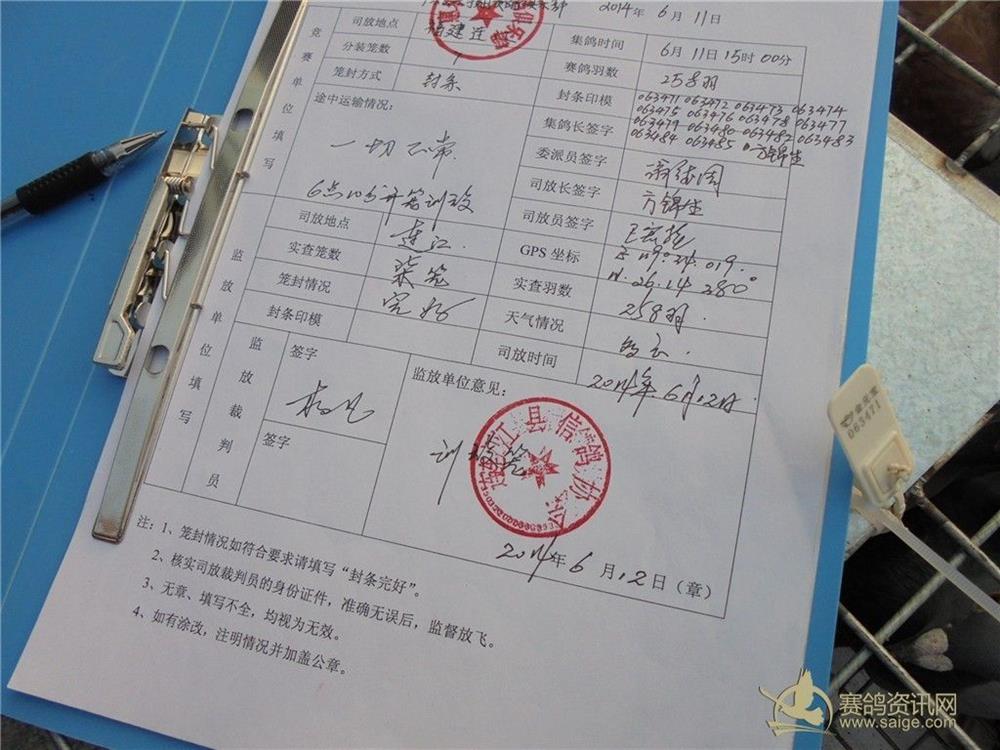 2014年 6月 11日
竞赛单位填写
司放地点 福建连
集鸽时间 6月11日15时00分
分装笼数
赛鸽羽数 258羽
笼封方式 封条
封条印模 063471 063472 063473 063474
063475 063476 063478 063477
063479 063480 063482 063483
063484 063485
途中运输情况：
一切正常
6点10分开笼训放
集鸽长签字 方锦生
委派员签字
司放长签字 方锦生
司放员签字
监放单位填写
司放地点 连江
GPS 坐标
实查笼数 柒笼
实查羽数 258羽
笼封情况 完好
天气情况 多云
封条印模
司放时间 2014年6月12日
监放裁判员
签字
签字
监放单位意见：
连江县信鸽协会
2014年 6月12日（章）
注：1、笼封情况如符合要求请填写“封条完好”。
2、核实司放裁判员的身份证件，准确无误后，监督放飞。
3、无章、填写不全，均视为无效。
4、如有涂改，注明情况并加盖公章。
063471
赛鸽资讯网
www.saige.com